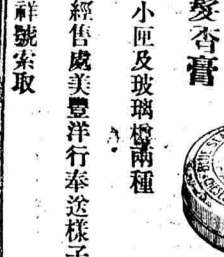 髮香膏
小匣及玻璃樽兩種
經售處美豐洋行奉送樣子
祥號索取